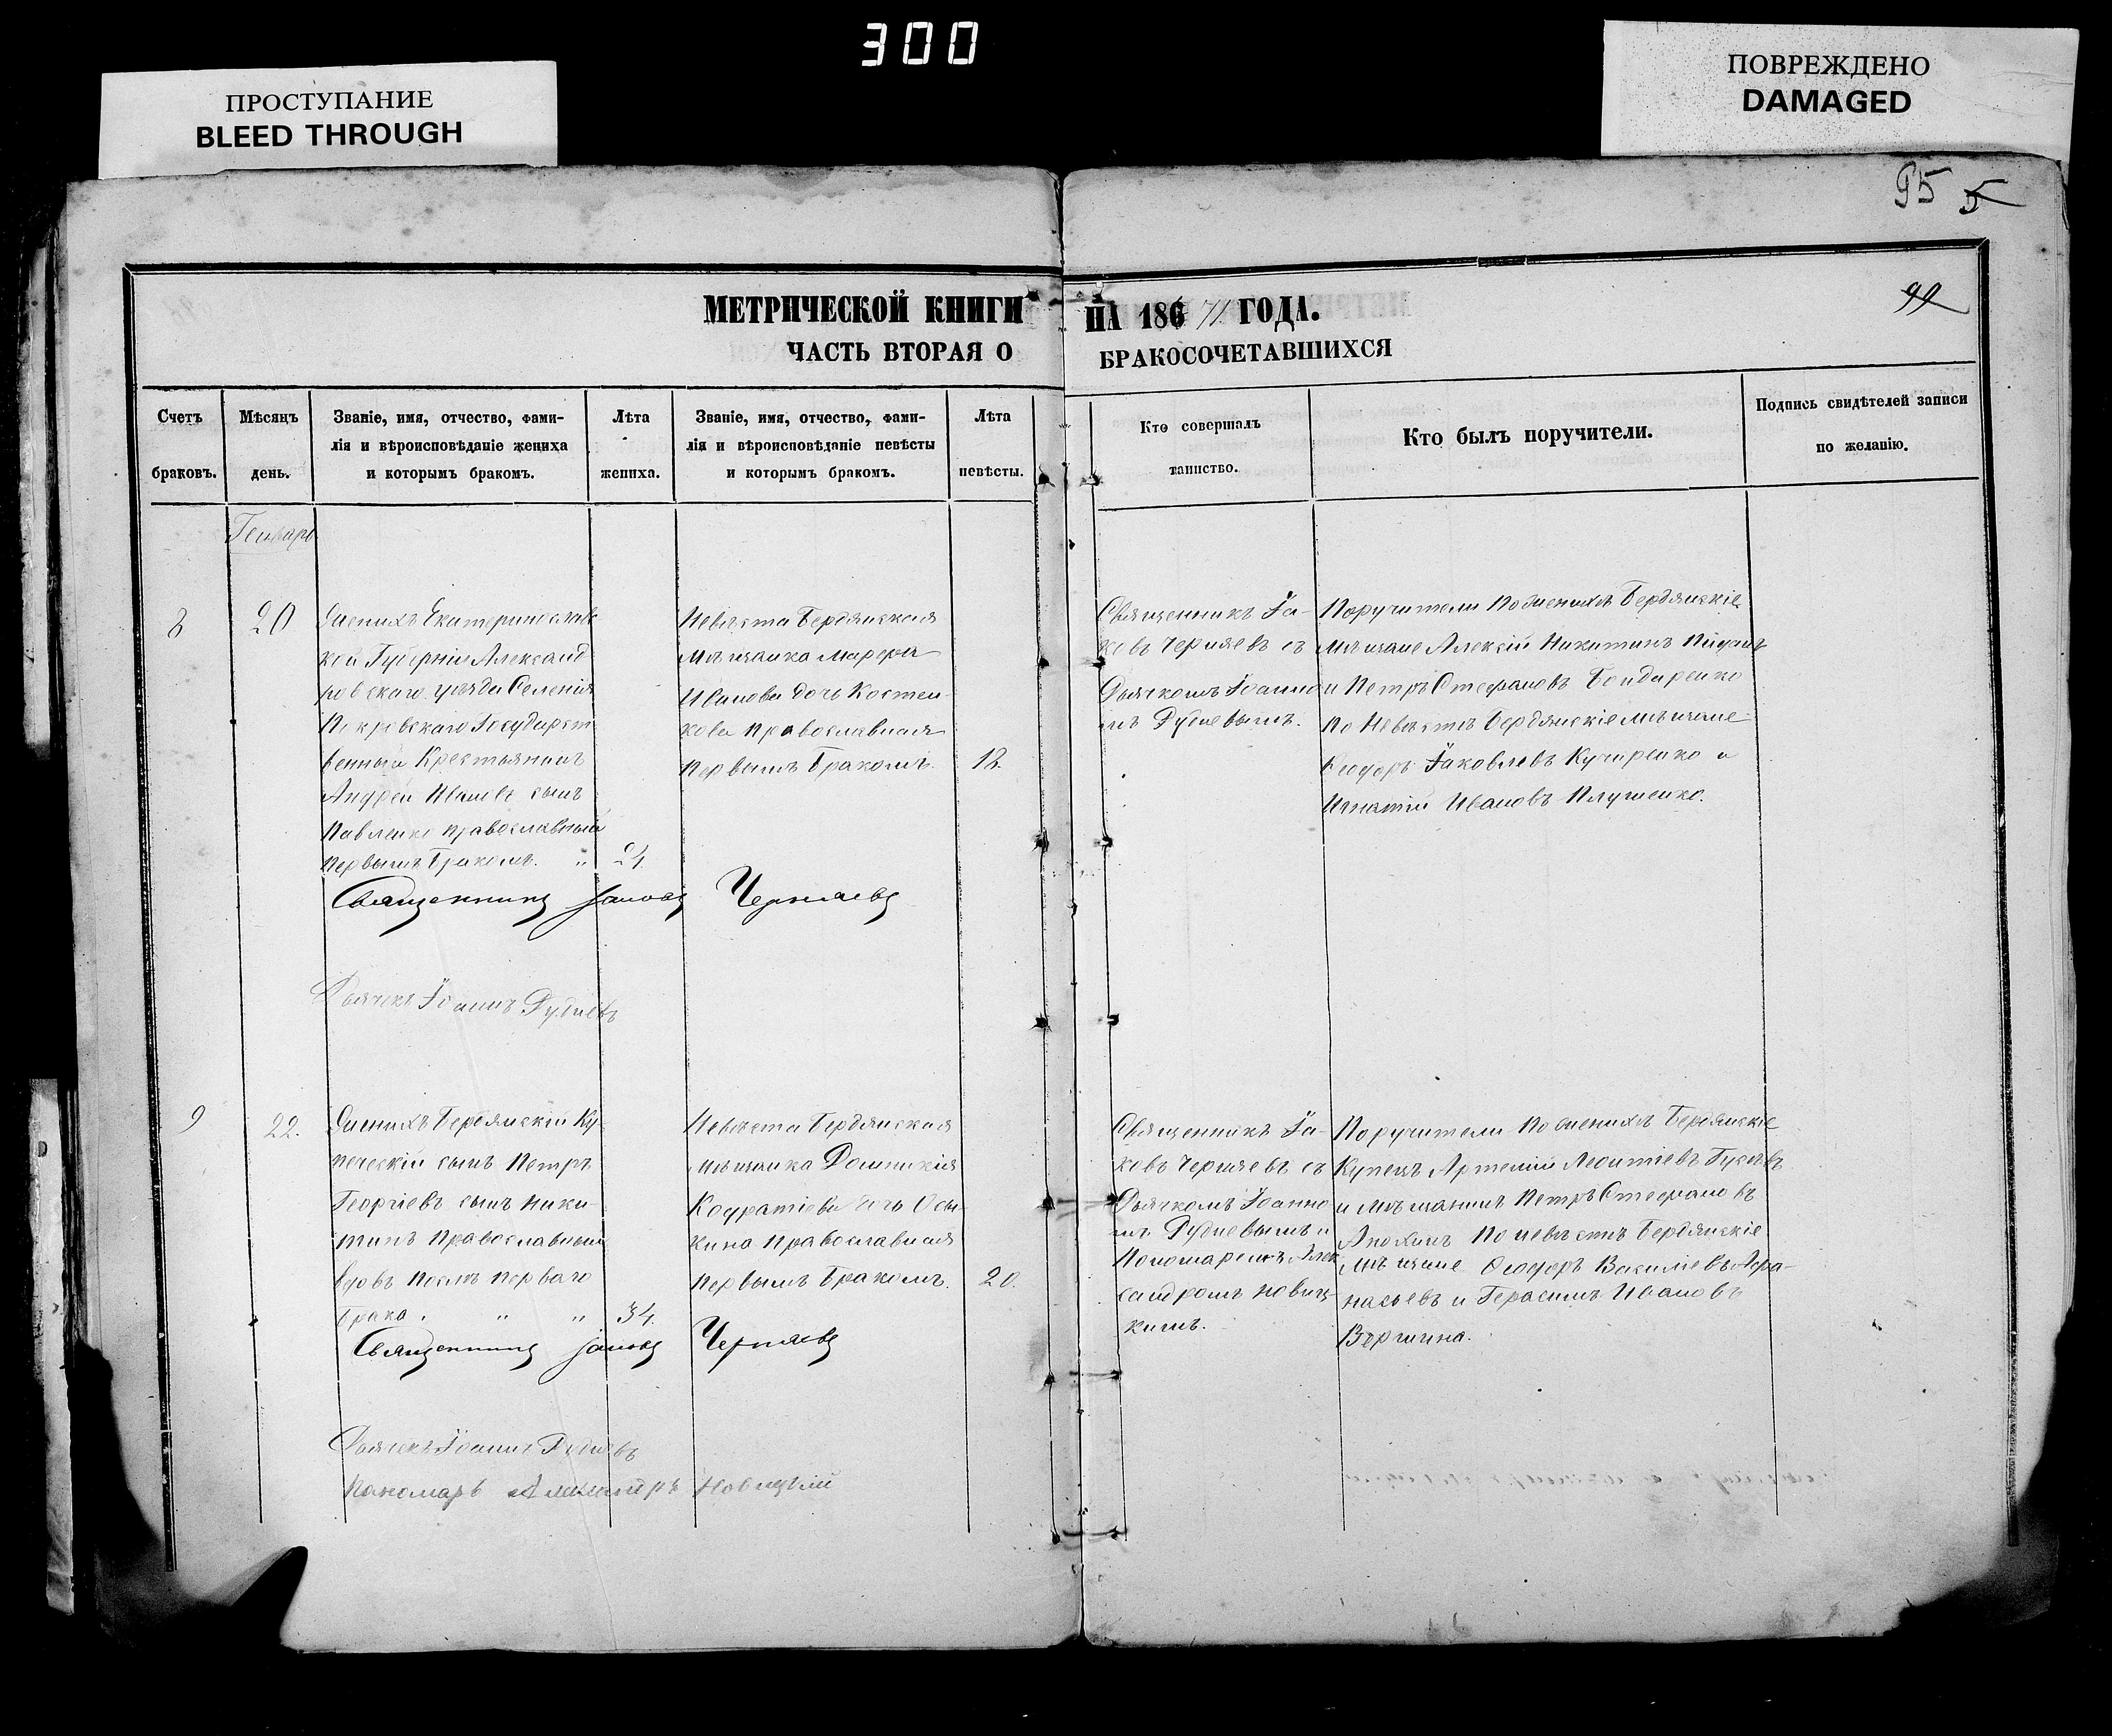 300
ПРОСТУПАНИЕ
BLEED THROUGH
ПОВРЕЖДЕНО
DAMAGED
95 5
99
МЕТРИЧЕСКОЙ КНИГИ НА 186 71 ГОДА.
ЧАСТЬ ВТОРАЯ О БРАКОСОЧЕТАВШИХСЯ
Счетъ
браковъ.
Мѣсяцъ
день.
Званіе, имя, отчество, фами-
лія и вѣроисповѣданіе жениха
и которымъ бракомъ.
Лѣта
жениха.
Званіе, имя, отчество, фами-
лія и вѣроисповѣданіе невѣсты
и которымъ бракомъ.
Лѣта
невѣсты.
Кто совершалъ
таинство.
Кто былъ поручители.
Подпись свидѣтелей записи
по желанію.
Генварь
8
20
Женихъ Екатеринослав
кой Губерніи Александ
ровскаго уѣзда Селенія
Покровскаго Государст
венный Крестьянинъ
Андрей Ивановъ сынъ
Павленко православный
первымъ бракомъ. " 24.
Невѣста Бердянская
мѣщанка Марѳа
Иванова дочь Костен-
кова православная
первымъ бракомъ. 18.
Священникъ Іа-
ковъ Черняевъ съ
Дьячкомъ Іоанно
мъ Рудневымъ.
Поручители по женихѣ Бердянскіе
мѣщане Алексій Никитинъ
и Петръ Стефановъ Бондаренко
по Невѣстѣ Бердянскіе мѣщане
Ѳеодоръ Іаковлевъ Кучеренко и
Игнатій Ивановъ Плушенко.
Священникъ Іаковъ Черняевъ
Дьячекъ Іоаннъ Рудневъ
9
22.
Женихъ Бердянскій Ку
печескій сынъ Петръ
Георгіевъ сынъ Ники-
тинъ Православный
вдовъ послѣ перваго
брака. " " 34.
Невѣста Бердянская
мѣщанка Домникія
Кодратіева дочь Осы-
кина православная
первымъ бракомъ. 20.
Священникъ Іа-
ковъ Черняевъ съ
Дьячкомъ Іоанно
мъ Рудневымъ и
Пономаремъ Алек
сандромъ Новиц-
кимъ.
Поручители по женихѣ Бердянскіе
Купецъ Артемій Леонтіевъ Гусевъ
и мѣщанинъ Петръ Стефановъ
Анохинъ по невѣстѣ Бердянскіе
мѣщане Ѳеодоръ Василіевъ Аѳа-
насьевъ и Герасимъ Ивановъ
Вершина.
Священникъ Іаковъ Черняевъ
Дьячекъ Іоаннъ Рудневъ
Пономарь Александръ Новицкій